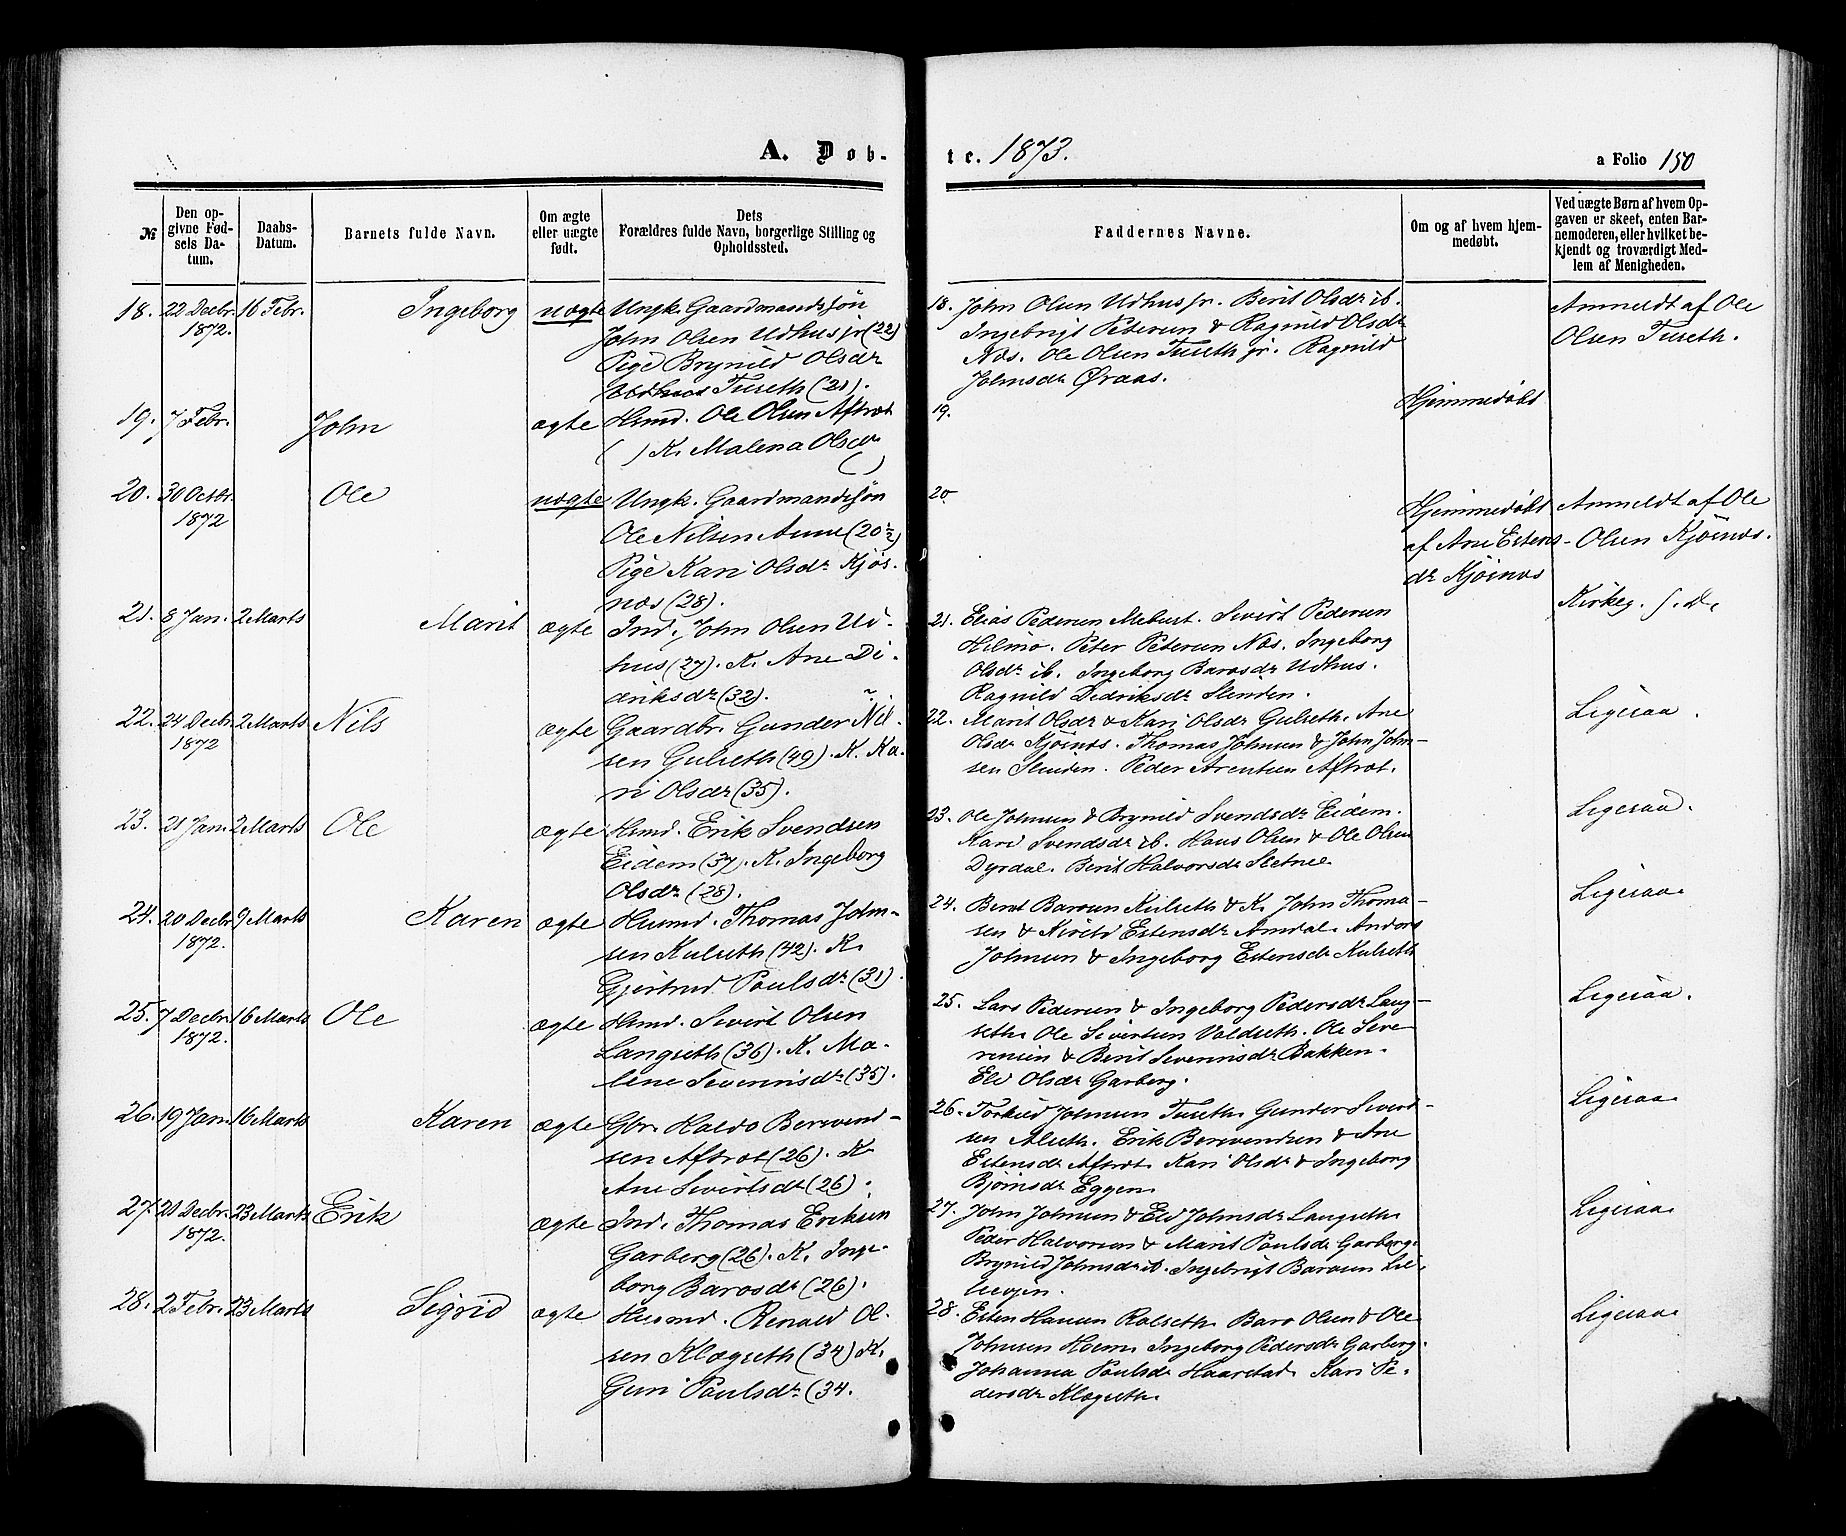 A. Døb-
te. 1873.
a Folio 150
№
Den op-
givne Fød-
sels Da-
tum.
Daabs-
Datum.
Barnets fulde Navn.
Om ægte
eller uægte
født.
Dets
Forældres fulde Navn, borgerlige Stilling og
Opholdssted.
Faddernes Navne.
Om og af hvem hjem-
medøbt.
Ved uægte Børn af hvem Op-
gaven er skeet, enten Bar-
nemoderen, eller hvilket be-
kjendt og troværdigt Med-
lem af Menigheden.
18. 22 Decbr. 16 Febr. Ingeborg uægte Ungk. Gaardmandssøn
1872.
John Olsen Udhus jr (22)
Pige Brynild Olsdr
Tuseth (21).
18. John Olsen Udhus jr. Berit Olsdr ib.
Ingebrigt Pedersen & Ragnild Olsdr
Næs. Ole Olsen Tuseth jr. Ragnild
Johnsdr Øraas.
Anmeldt af Ole
Olsen Tuseth.
19. 7 Febr. John ægte Hsmd. Ole Olsen Aftræt
( ) K. Malena Olsdr
( )
19.
Hjemmedøbt
20. 30 Octbr. Ole uægte Ungk. Gaardmandssøn
1872
Ole Nilsen Aune (20½)
Pige Kari Olsdr Kjøs-
næs (28).
20
Hjemmedøbt
af Ane Estens-
dr Kjösnæs
Anmeldt af Ole
Olsen Kjösnæs.
21. 8 Jan. 2 Marts Marit ægte Ind. John Olsen Ud-
hus (27). K. Ane Di-
driksdr (32).
21. Elias Pedersen Mebust. Sivert Pedersen
Hilmo. Peter Petersen Næs. Ingeborg
Olsdr ib. Ingeborg Barosdr Udhus.
Ragnild Dedriksdr Slinden.
Kirkeg. s. D.
22. 24 Decbr. 2 Marts Nils ægte Gaardbr. Gunder Nil-
1872
sen Gulseth (49). K. Ka-
ri Olsdr (35).
22. Marit Olsdr & Kari Olsdr Gulseth. Ane
Olsdr Kjösnæs. Thomas Johnsen & John John-
sen Slinden. Peder Arentsen Aftræt.
Ligesaa.
23. 21 Jan. 2 Marts Ole ægte Hsmd. Erik Svendsen
Eidem (37). K. Ingeborg
Olsdr (28).
23. Ole Johnsen & Brynild Svendsdr Eidem.
Kari Svendsdr ib. Hans Olsen & Ole Olsen
Dyrdal. Berit Halvorsdr Sletne
Ligesaa.
24. 20 Decbr. 9 Marts Karen ægte Husmd. Thomas John-
1872.
sen Kulseth (42). K.
Gjertrud Paulsdr (31).
24. Bernt Barosen Kulseth & K. John Thoma-
sen & Estensdr Amdal. Anders
Johnsen & Ingeborg Estensdr Kulseth
Ligesaa.
25. 7 Decbr. 16 Marts Ole ægte Hsmd. Sivert Olsen
1872.
Langseth (36). K. Ma-
lene Severinsdr (35).
25. Lars Pedersen & Ingeborg Pedersdr Lang-
seth. Ole Sivertsen Valdseth. Ole Seve-
rinsen & Berit Severinsdr Bakken.
Eli Olsdr Garberg.
Ligesaa.
26. 19 Jan. 16 Marts Karen ægte Gbr. Haldo Bersvend-
sen Aftræt (26). K.
Ane Sivertsdr (26).
26. Torkild Johnsen Tuseth. Gunder Sivert-
sen Alseth. Erik Bersvendsen & Ane
Estensdr Aftræt. Kari Olsdr & Ingeborg
Bjørnsdr Eggen.
Ligesaa.
27. 21 Decbr. 23 Marts Erik ægte Ind. Thomas Eriksen
1872.
Garberg (26). K. Inge-
borg Barosdr (26).
27. John Johnsen & Eli Johnsdr Langseth.
Peder Halvorsen & Marit Paulsdr Garberg.
Brynild Johnsdr ib. Ingebrigt Barosen Lil-
levjen.
Ligesaa.
28. 2 Febr. 23 Marts Sigrid ægte Husmd. Renald Ol-
sen Klægseth (34) K.
Guri Paulsdr (34.
28. Esten Hansen Rolseth. Baro Olsen & Ole
Johnsen Hoem. Ingeborg Pedersdr Garberg.
Johanna Paulsdr Haarstad. Kari Pe-
dersdr Klægseth.
Ligesaa.